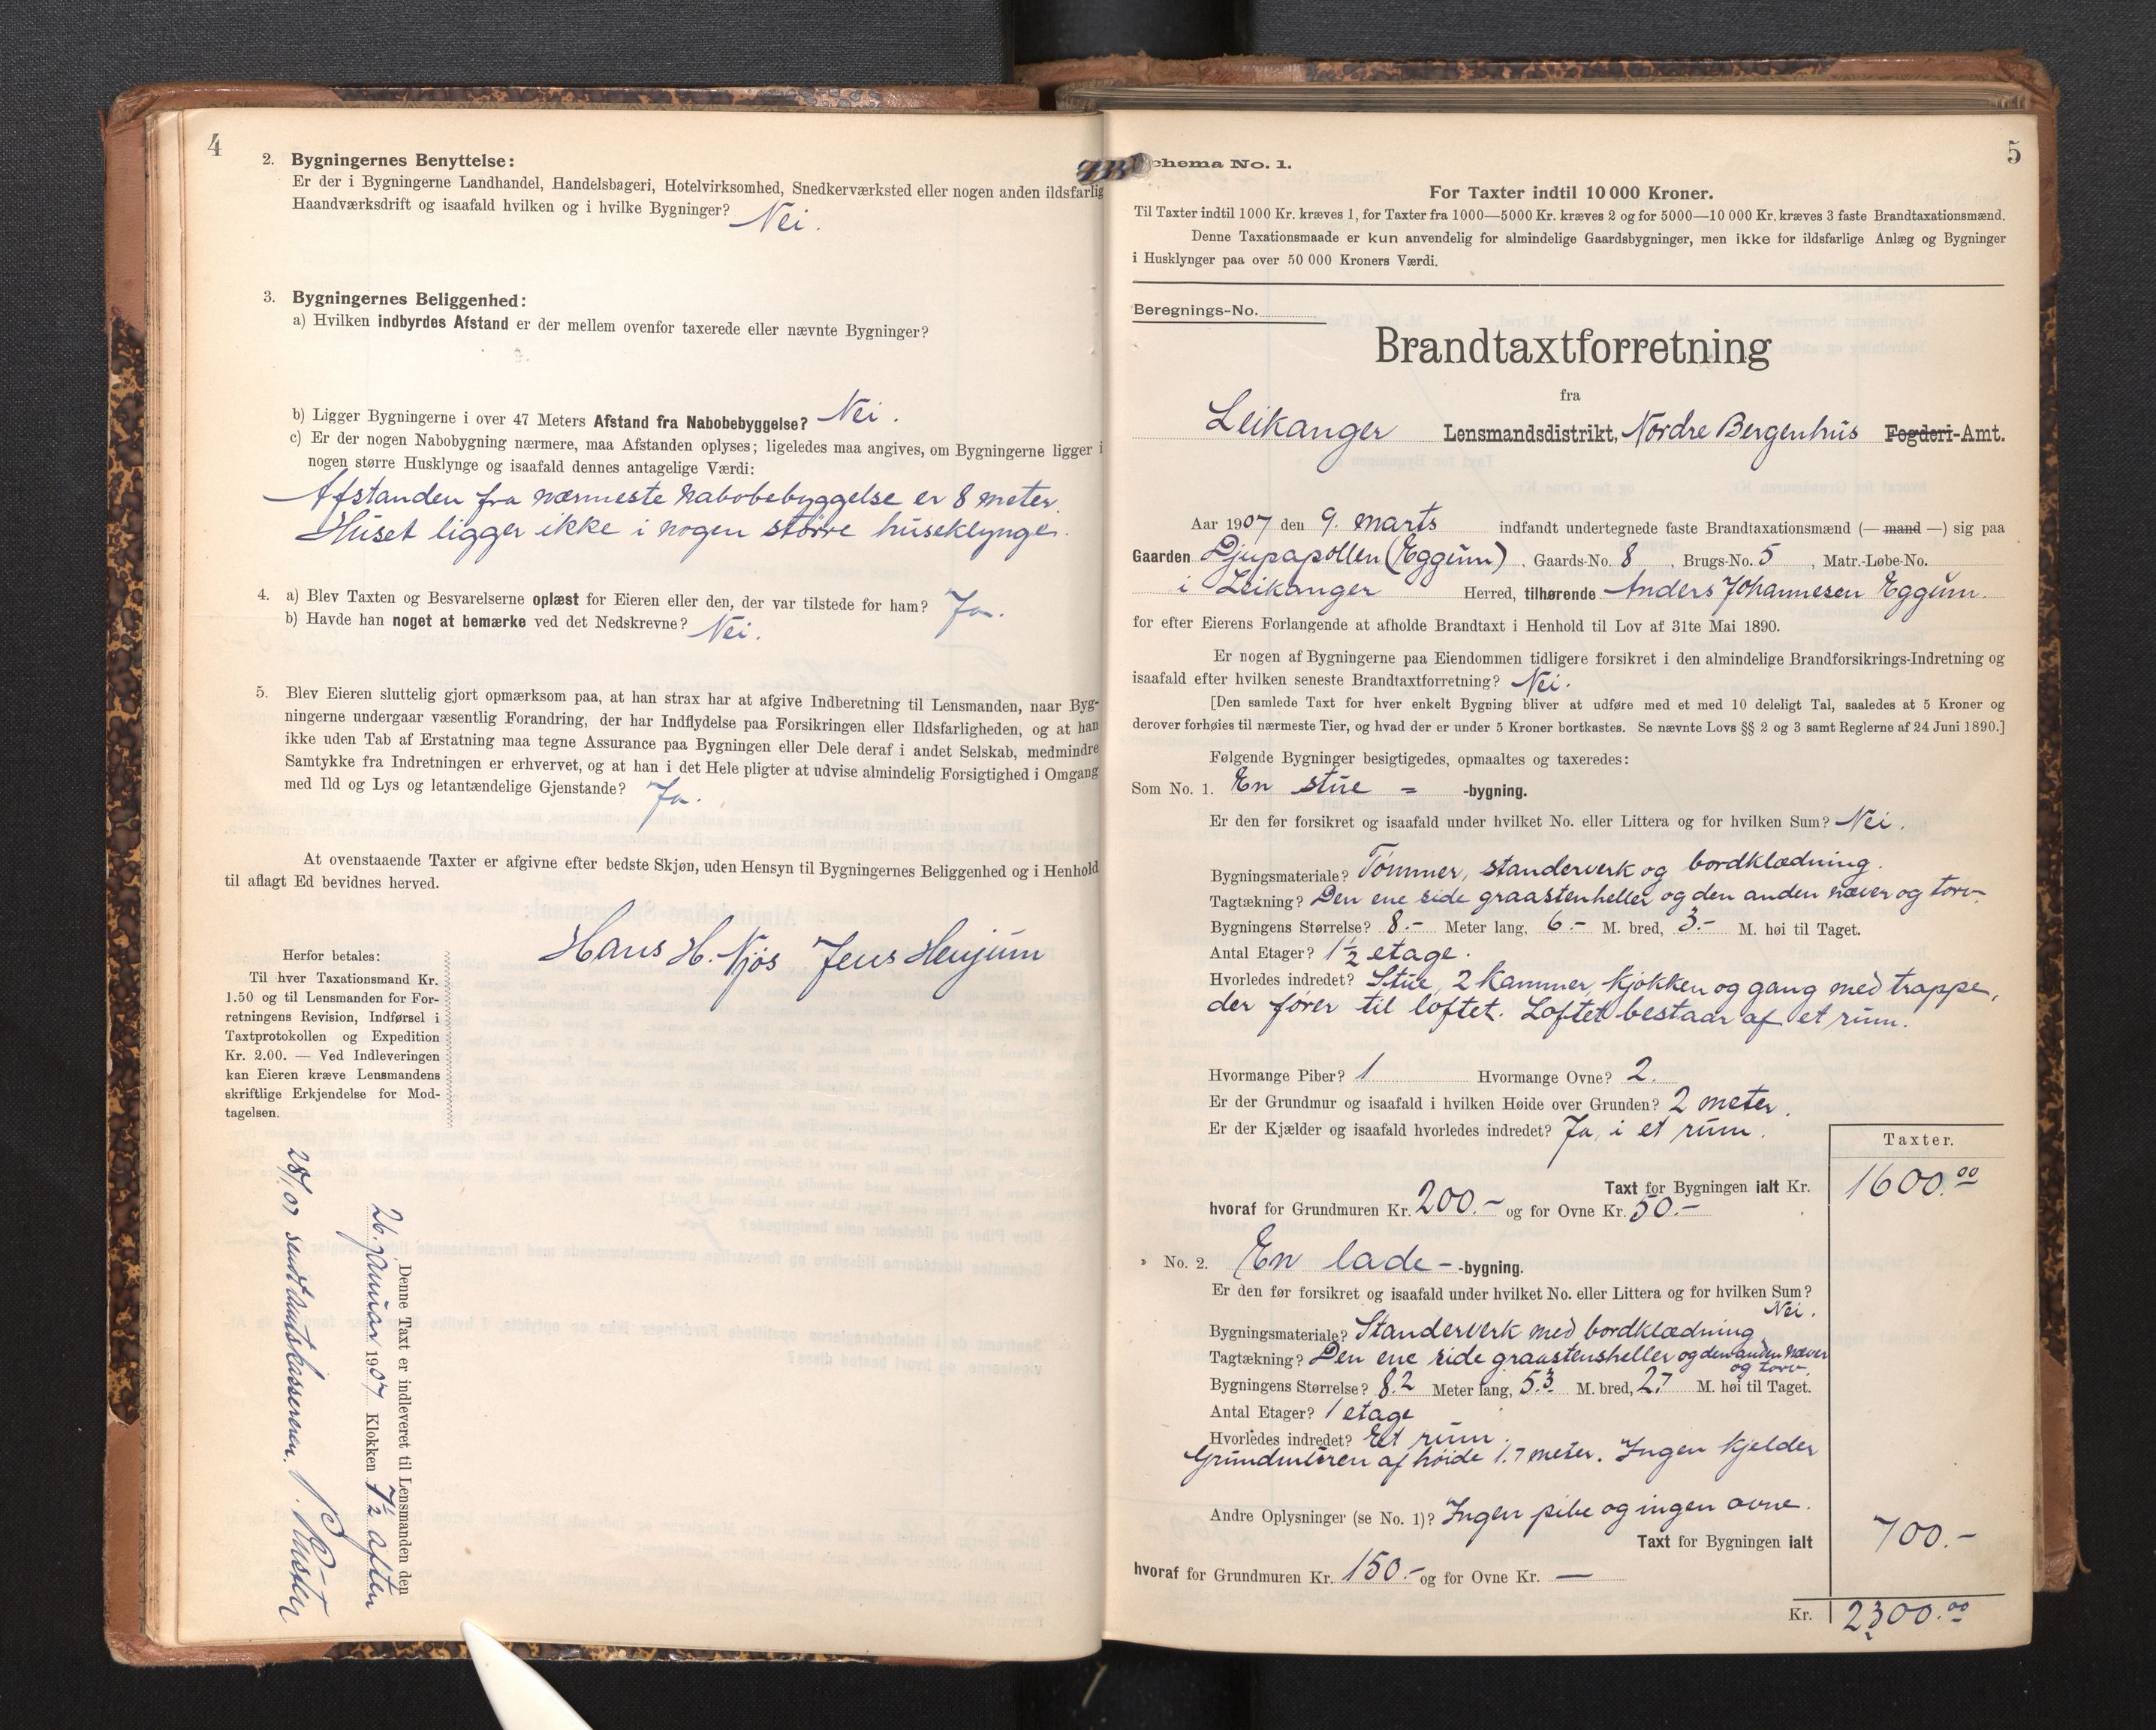 4
2. Bygningernes Benyttelse:
Er der i Bygningerne Landhandel, Handelsbageri, Hotelvirksomhed, Snedkerværksted eller nogen anden ildsfarlig
Haandværksdrift og isaafald hvilken og i hvilke Bygninger? Nei.
3. Bygningernes Beliggenhed:
a) Hvilken indbyrdes Afstand er der mellem ovenfor taxerede eller nævnte Bygninger?
b) Ligger Bygningerne i over 47 Meters Afstand fra Nabobebyggelse? Nei.
c) Er der nogen Nabobygning nærmere, maa Afstanden oplyses; ligeledes maa angives, om Bygningerne ligger i
nogen større Husklynge og isaafald dennes antagelige Værdi:
Afstanden fra nærmeste nabobebyggelse er 8 meter.
Huset ligger ikke i nogen større huseklynge.
4. a) Blev Taxten og Besvarelserne oplæst for Eieren eller den, der var tilstede for ham? Ja.
b) Havde han noget at bemærke ved det Nedskrevne? Nei.
5. Blev Eieren sluttelig gjort opmærksom paa, at han strax har at afgive Indberetning til Lensmanden, naar Byg-
ningerne undergaar væsentlig Forandring, der har Indflydelse paa Forsikringen eller Ildsfarligheden, og at han
ikke uden Tab af Erstatning maa tegne Assurance paa Bygningen eller Dele deraf i andet Selskab, medmindre
Samtykke fra Indretningen er erhvervet, og at han i det Hele pligter at udvise almindelig Forsigtighed i Omgang
med Ild og Lys og letantændelige Gjenstande? Ja.
At ovenstaaende Taxter er afgivne efter bedste Skjøn, uden Hensyn til Bygningernes Beliggenhed og i Henhold
til aflagt Ed bevidnes herved.
Hans H. Njøs Jens Henjum
Herfor betales:
Til hver Taxationsmand Kr.
1.50 og til Lensmanden for For-
retningens Revision, Indførsel i
Taxtprotokollen og Expedition
Kr. 2.00. — Ved Indleveringen
kan Eieren kræve Lensmandens
skriftlige Erkjendelse for Mod-
tagelsen.
Denne Taxt er indleveret til Lensmanden den
26. januar 1907 Klokken 7½ aften
sendt amtskassereren.
Schema No. 1.
5
For Taxter indtil 10 000 Kroner.
Til Taxter indtil 1000 Kr. kræves 1, for Taxter fra 1000—5000 Kr. kræves 2 og for 5000—10 000 Kr. kræves 3 faste Brandtaxationsmænd.
Denne Taxationsmaade er kun anvendelig for almindelige Gaardsbygninger, men ikke for ildsfarlige Anlæg og Bygninger
i Husklynger paa over 50 000 Kroners Værdi.
Beregnings-No.
Brandtaxtforretning
fra
Leikanger Lensmandsdistrikt, Nordre Bergenhus Fogderi-Amt.
Aar 1907 den 9. marts indfandt undertegnede faste Brandtaxationsmænd (— mand —) sig paa
Gaarden Djupapollen (Eggum), Gaards-No. 8, Brugs-No. 5, Matr.-Løbe-No.
i Leikanger Herred, tilhørende Anders Johannesen Eggum.
for efter Eierens Forlangende at afholde Brandtaxt i Henhold til Lov af 31te Mai 1890.
Er nogen af Bygningerne paa Eiendommen tidligere forsikret i den almindelige Brandforsikrings-Indretning og
isaafald efter hvilken seneste Brandtaxtforretning? Nei.
[Den samlede Taxt for hver enkelt Bygning bliver at udføre med et med 10 deleligt Tal, saaledes at 5 Kroner og
derover forhøies til nærmeste Tier, og hvad der er under 5 Kroner bortkastes. Se nævnte Lovs §§ 2 og 3 samt Reglerne af 24 Juni 1890.]
Følgende Bygninger besigtigedes, opmaaltes og taxeredes:
Som No. 1. En stue = -bygning.
Er den før forsikret og isaafald under hvilket No. eller Littera og for hvilken Sum? Nei.
Bygningsmateriale? Tømmer, standerverk og bordklædning.
Tagtækning? Den ene side graastenheller og den anden næver og torv.
Bygningens Størrelse? 8.- Meter lang, 6.- M. bred, 3.- M. høi til Taget.
Antal Etager? 1½ etage.
Hvorledes indredet? Stue, 2 kammer, kjøkken og gang med trappe,
der fører til loftet. Loftet bestaar af et rum.
Hvormange Piber? 1 Hvormange Ovne? 2.
Er der Grundmur og isaafald i hvilken Høide over Grunden? 2 meter.
Er der Kjælder og isaafald hvorledes indredet? Ja, i et rum.
Taxter.
Taxt for Bygningen ialt Kr. 1600.00
hvoraf for Grundmuren Kr. 200.- og for Ovne Kr. 50.-
» No. 2. En lade - -bygning.
Er den før forsikret og isaafald under hvilket No. eller Littera og for hvilken Sum?
Nei.
Bygningsmateriale? Standerverk med bordklædning
Tagtækning? Den ene side graastensheller og den anden næver
og torv.
Bygningens Størrelse? 8.2 Meter lang, 5.3 M. bred, 2.7 M. høi til Taget.
Antal Etager? 1 etage
Hvorledes indredet? Et rum.
Grundmuren af høide 1.7 meter. Ingen kjelder
Andre Oplysninger (se No. 1)? Ingen pibe og ingen ovne.
Taxt for Bygningen ialt 700.-
hvoraf for Grundmuren Kr. 150.- og for Ovne Kr. —
Kr. 2300.00